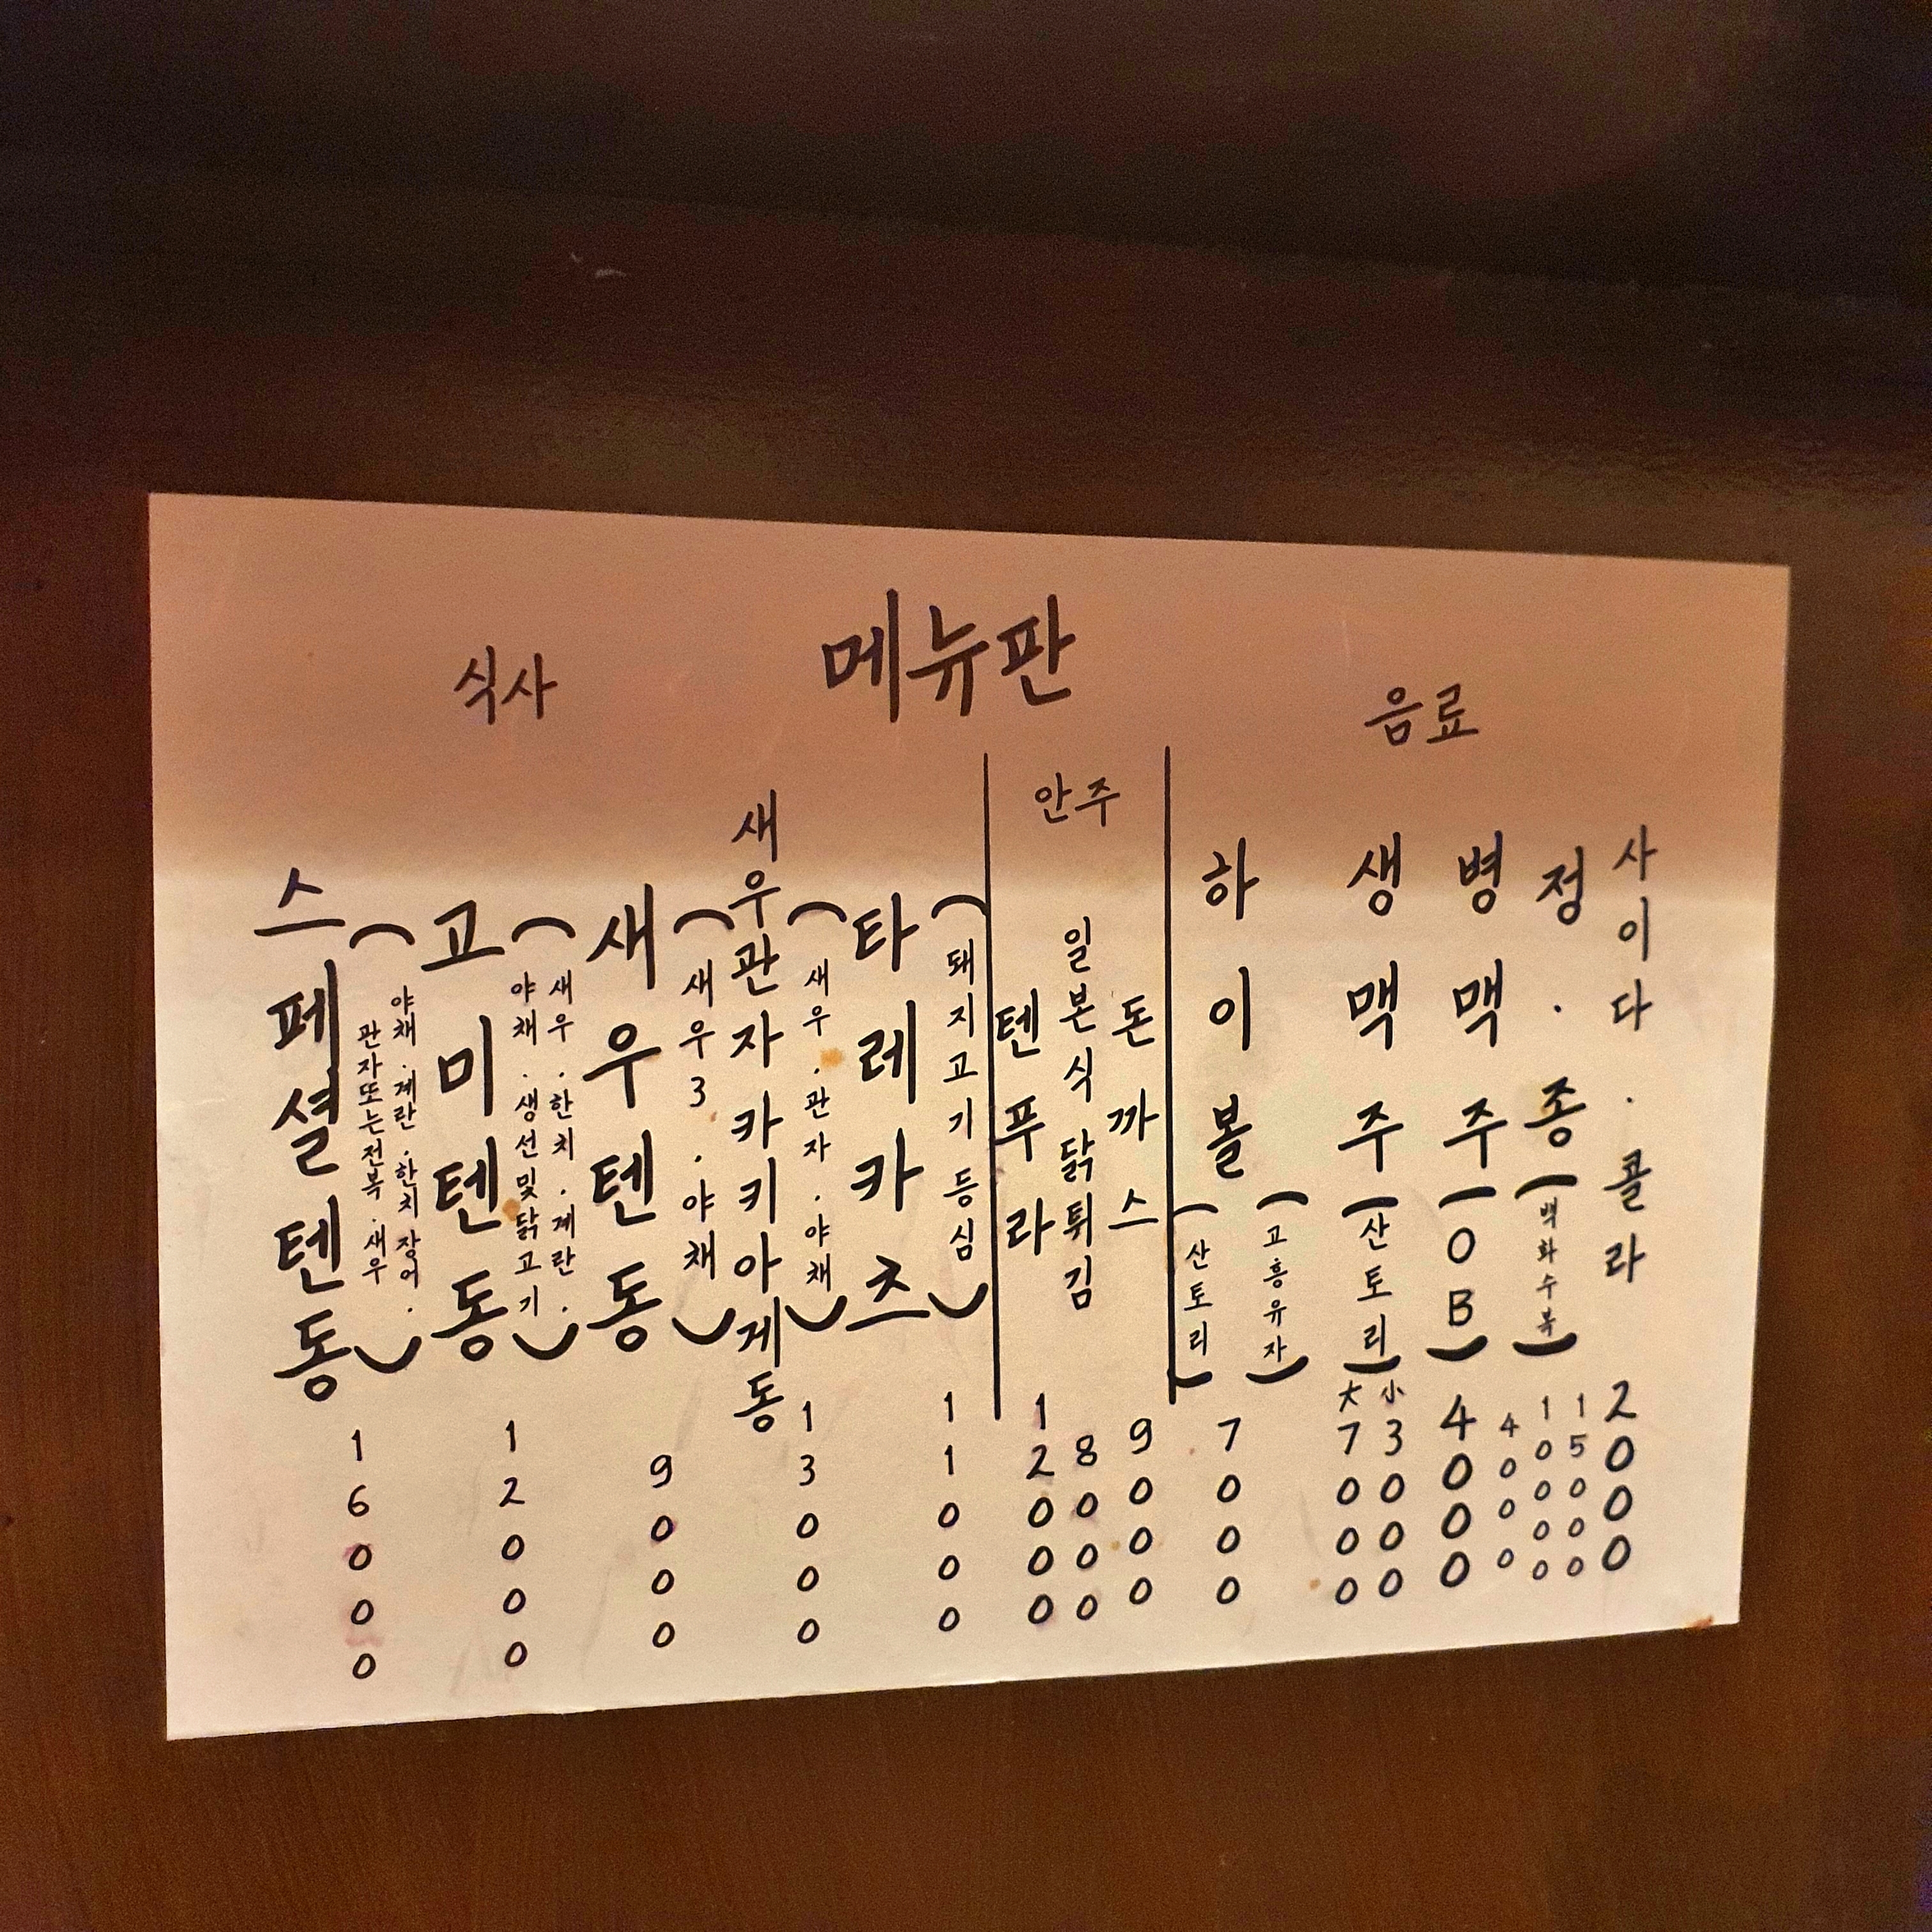 메뉴판
식사
스페셜텐동
(야채.계란.한치장어.
관자또는전복.새우)
16000
고미텐동
(새우.한치.계란.
야채.생선및닭고기)
12000
새우텐동
(새우3.야채)
9000
새우관자카키아게동
(새우.관자.야채)
13000
타레카츠
(돼지고기등심)
11000
안주
텐푸라
12000
일본식닭튀김
8000
돈까스
9000
음료
하이볼
(산토리)
(고흥유자)
7000
생맥주
(산토리)
大 7000
小 3000
병맥주
(OB)
4000
정.종
(백화수복)
4000
10000
15000
사이다.콜라
2000